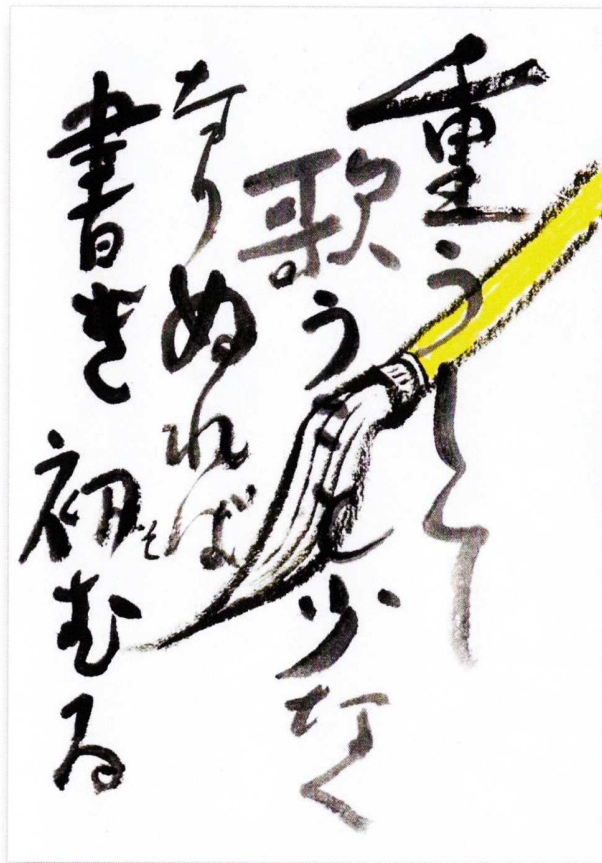 重うして
歌うこと少なく
なりぬれば
書き初むる
そ